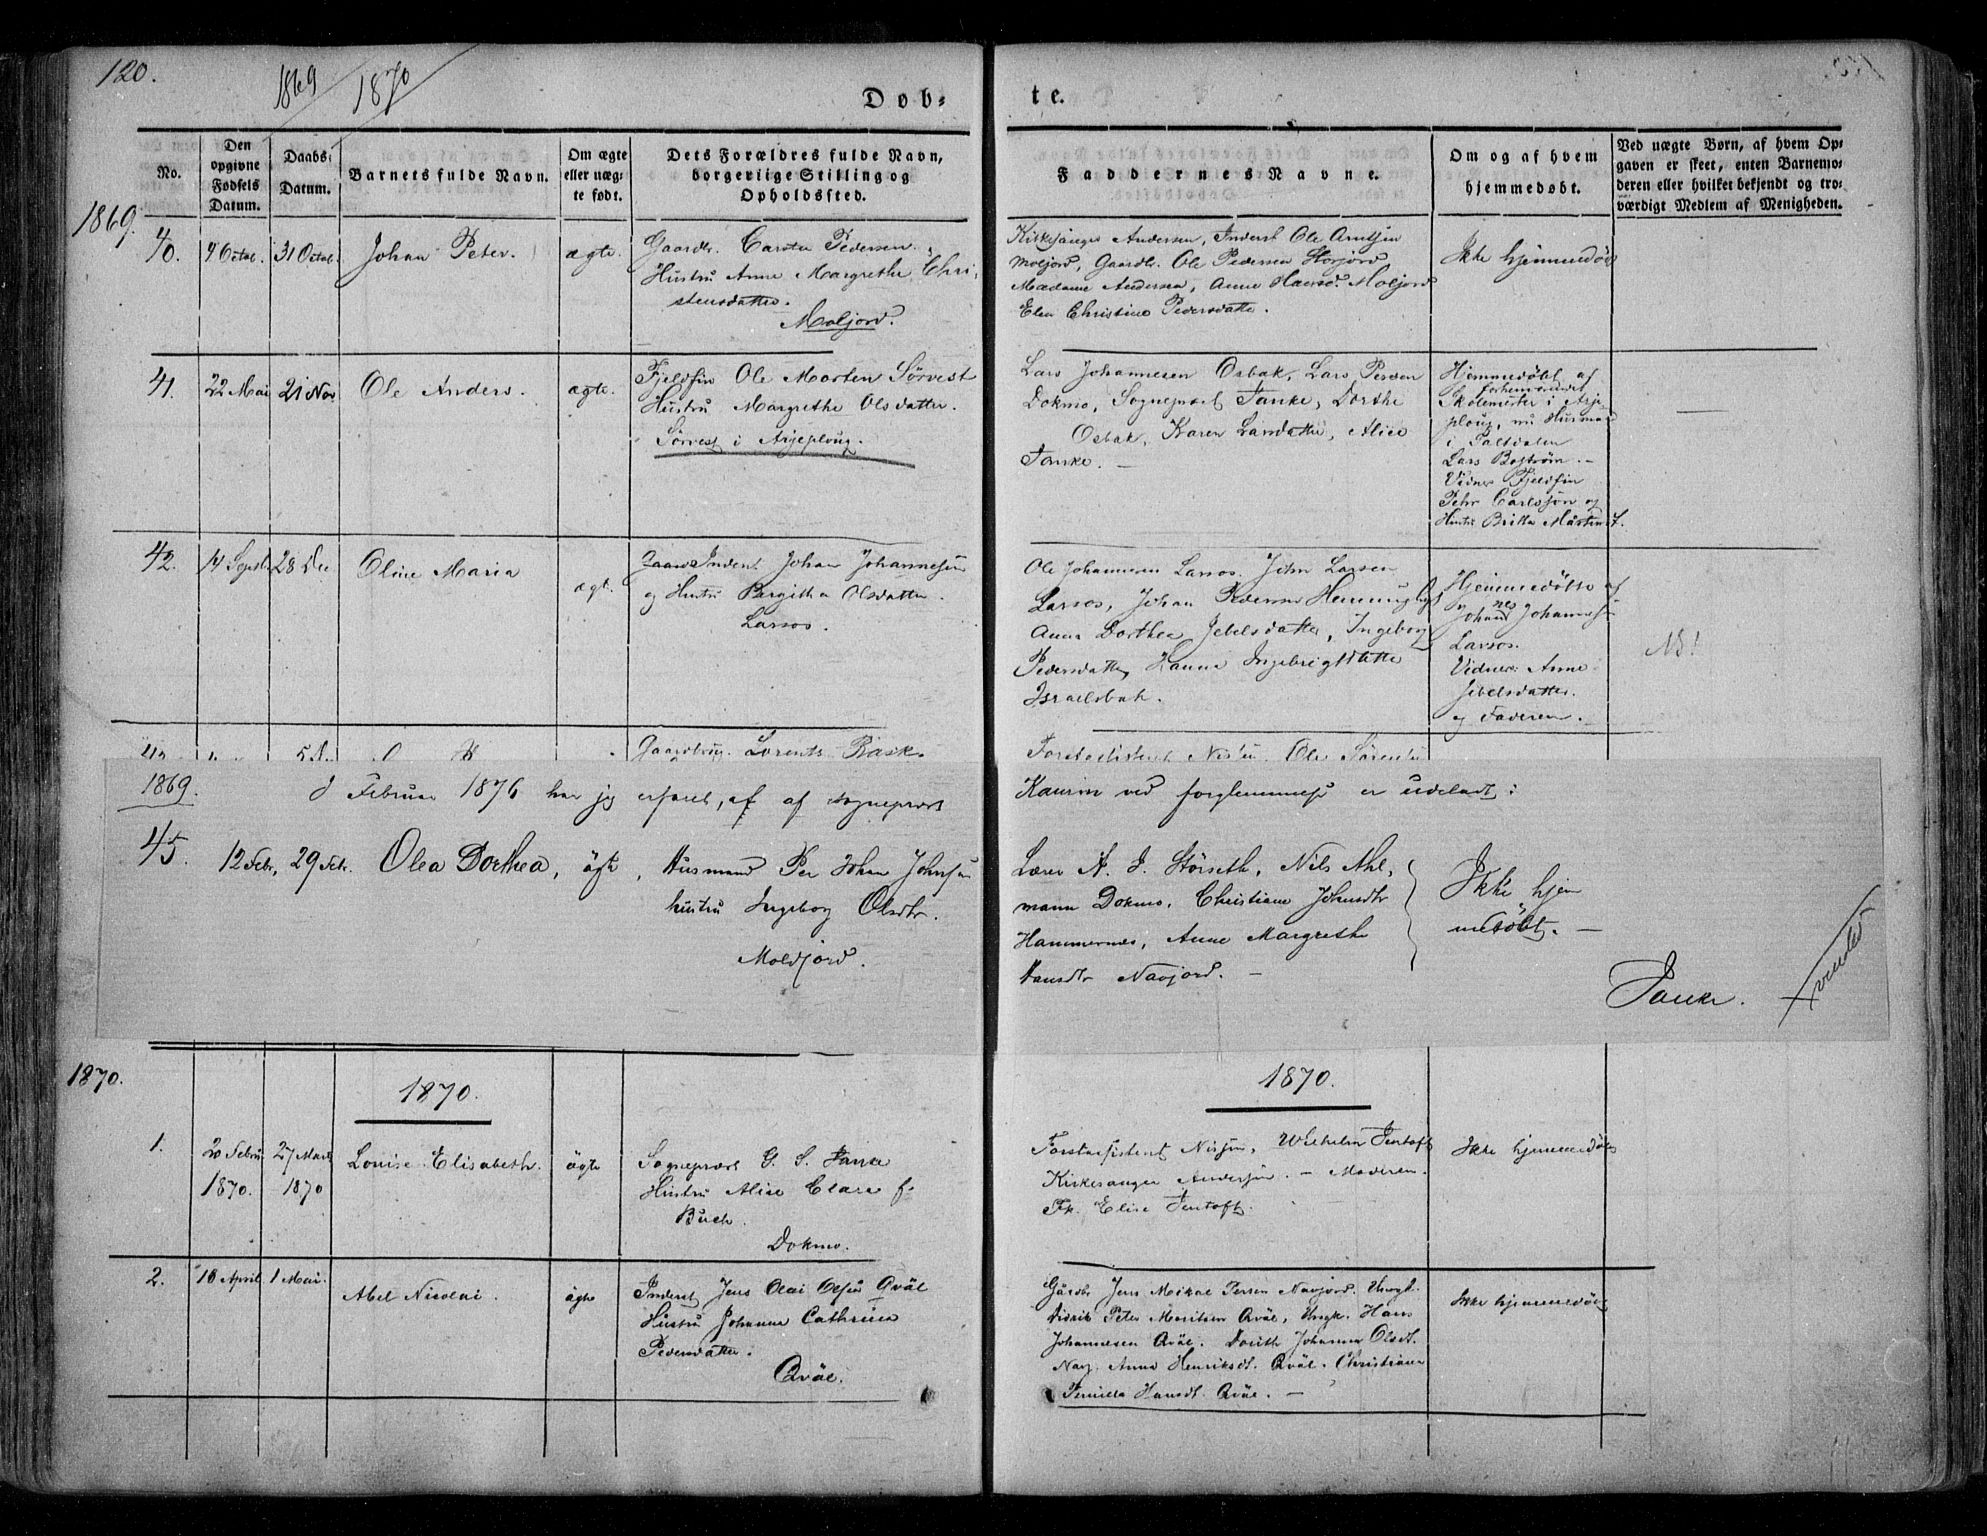 120.
1869
1870
Døb-
te.
No.
Den opgivne Fødsels Datum.
Daabs-Datum.
Barnets fulde Navn.
Om ægte eller uægte født.
Dets Forældres fulde Navn, borgerlige Stilling og Opholdssted.
Faddernes Navne.
Om og af hvem hjemmedøbt.
Ved uægte Børn, af hvem Opgaven er skeet, enten Barnemoderen eller hvilket bekjendt og troværdigt Medlem af Menigheden.
1869.
40. 4 Octob. 31 Octob. Johan Peter. ægte.
Gaardbr. Carsten Pedersen.
Hustru Anne Margrethe Chri-
stensdatter.
Moljord.
Kirkesanger Andersen, Inderst Ole Arntsen
Moljord, Gaardbr. Ole Pedersen
Madame Andersen, Anne Hansd. Moljord
Elen Christine Pedersdatter.
Ikke hjemmedøbt
41. 22 Mai 21 Nov Ole Anders. ægte.
Fjeldfin Ole Morten Sørvest
Hustru Margrethe Olsdatter.
Sørvest i Arjeploug.
Lars Johannesen Osbak, Lars Persen
Dokmo, Sognepræst Tanke, Dorthe
Osbak, Karen Larsdatter, Alice
Tanke. —
Hjemmedøbt af
forhenværende
Skolemester i Arje-
ploug, nu Husmand
i Saltdalen
Lars Boström. —
Vidner Fjeldfin
Pehr Carlsson og
Hustr Britta Mårtensd.
—
42. 14 Septb 28 Dec Oline Maria ægt.
Gaards Inderst Johan Johannesen
og Hustru Bergitha Olsdatter.
Larsos.
Ole Johannesen Larsos. John Larsen
Larsos, Johan Pedersen
Anne Dorthea Jebelsdatter, Ingeborg
Pedersdatter, Hanna Ingebrigtsdatter
Israelsbak.
Hjemmedøbt af
Johannes Johannesen
Larsos.
Vidner: Anne
Jebelsdatter.
og Faderen.
NB!
Gaardbrug. Lorents Rask
Forstassistent Nissen. Ole Sørensen
1869. I Februar 1876 har jeg erfaret, at af Sognepræst
Kaurin ved forglemmelse er udeladt:
45. 12 Febr, 29 Febr. Olea Dorthea, ägte,
Husmand Per Johan Johnsen
hustru Ingeborg Olsdtr.
Moldjord.
Lærer A. J. Störseth, Nils Ahl-
mann Dokmo, Christiane Johnsdtr
Hammernes, Anne Margrethe
Hansdtr Navjord. —
Ikke hjem
medöbt. —
Tanke.
1870.
1870.
1870.
1. 20 Febru 27 Marts Louise Elisabeth. ägte
1870. 1870
Sognepræst G. S. Tanke
Hustru Alise Clara f.
Buch.
Dokmo.
Forstassistent Nissen, Wilhelm Jentoft
Kirkesanger Andersen. — Moderen.
Frk. Elise Jentoft.
Ikke hjemmedøbt
2. 10 April 1 Mai. Abel Nicolai. ägte
Inderst Jens Olai Olsen Qväl
Hustru Johanna Cathrina
Pedersdatter.
Qväl.
Gårdbr Jens Mikal Persen Navjord. Ungk.
Didrik Peter Moritsen Qväl, Ungk. Hans
Johannesen Qväl. Dorith Johanna Olsdt.
Navj. Anna Henriksdt. Qväl. Christiane
Pernilla Hansdt. Qväl. —
Ikke hjemmedøbt